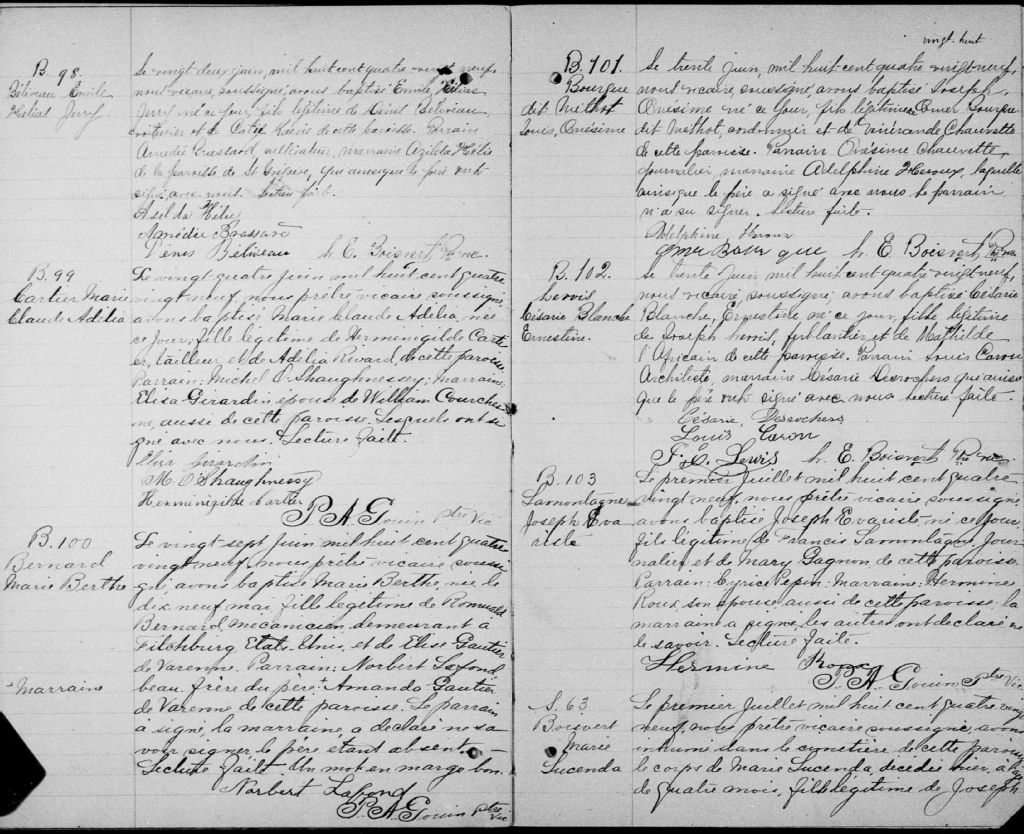 B. 98.
Béliveau Emile
Hélias Jerry
Le vingt deux juin, mil huit cent quatre vingt neuf,
nous vicaire, soussigné, avons baptisé Emile Hélias
Jerry né ce jour, fils légitime de Dénis Béliveau
voiturier et de de cette paroisse. Parrain
Amédée Brassard, cultivateur, marraine Azilda Hélie
de la paroisse de St Grégoire, qui ainsi que le père ont
signé avec nous. Lecture faite.
Asilda Hélie
Amédée Brassard
Dénis Béliveau h. E. Boisvert Ptre vic.
B. 99
Cartier Marie
Claude Adélia
Le vingt quatre juin mil huit cent quatre
vingt neuf, nous prêtre vicaire soussigné,
avons baptisé Marie Claude Adélia, née
ce jour, fille légitime de Herménégilde Carti
er, tailleur, et de Adélia Rivard, de cette paroisse
Parrain: Michel O'Shaughnessey; marraine:
Elisa Girardin épouse de William Courches
ne, aussi de cette paroisse, lesquels ont si
gné avec nous. Lecture faite.
Eliza Girardin
M. O'Shaughnessy
Herminégilde Cartier
P. A. Gouin ptre Vic
B. 100
Bernard
Marie Berthe
Le vingt-sept juin mil huit cent quatre
vingt neuf, nous prêtre vicaire soussi
gné, avons baptisé Marie Berthe née le
dix neuf mai, fille légitime de Romuald
Bernard, mécanicien, demeurant à
Fitchburg, Etats-Unis, et de Elise Gautier
de Varenne. Parrain: Norbert Lafond
beau-frère du père + Amanda Gautier
+ Marraine
de Varenne de cette paroisse. Le parrain
a signé, la marraine a déclaré ne sa
voir signer le père étant absent.
Lecture faite. Un mot en marge bon.
Norbert Lafond
P. A. Gouin ptre Vic
vingt-huit
B. 101.
Bourque
dit Méthot
Louis, Onésime
Le trente juin, mil huit cent quatre vingt neuf,
nous vicaire, soussigné, avons baptisé Joseph
Onésime né ce jour, fils légitime Omer Bourque
dit Méthot, cordonnier et de Vénérande Chauvette
de cette paroisse. Parrain Onésime Chauvette
journalier, marraine Adelphine Heroux, laquelle
ainsi que le père a signé avec nous. Le parrain
n'a su signer. Lecture faite.
Adelphine Heroux
Omer Bourque h. E. Boisvert, Ptre vic.
B. 102.
Césarie Blanche
Ernestine.
Le trente juin, mil huit cent quatre vingt neuf,
nous vicaire, soussigné avons baptisé Césarie
Blanche, Ernestine née ce jour, fille légitime
de Joseph ferblantier et de Mathilde
l'Africain de cette paroisse. Parrain Louis Caron
Architecte, marraine Césarie Desrochers qui ainsi
que le père ont signé avec nous. Lecture faite.
Césarie Desrochers
Louis Caron
J. E. Lewis h. E. Boisvert Ptre vic
B. 103
Lamontagne
Joseph Eva
riste
Le premier juillet mil huit cent quatre
vingt neuf, nous prêtre vicaire soussigné
avons baptisé Joseph Evariste né ce jour,
fils légitime de Francis Lamontagne, jour
nalier et de Mary Gagnon de cette paroisse.
Parrain: Cyrice Pépin. Marraine: Hermine
Roux, son épouse aussi de cette paroisse. la
marraine a signé, les autres ont déclaré ne
le savoir. Lecture faite.
Hermine Roux
P. A. Gouin Ptre Vic
S. 63
Boisvert
Marie
Lucenda
Le premier juillet mil huit cent quatre vingt
neuf, nous prêtre vicaire soussigné, avons
inhumé dans le cimetière de cette paroisse
le corps de Marie Lucenda, décédée hier, à l'âge
de quatre mois, fille légitime de Joseph